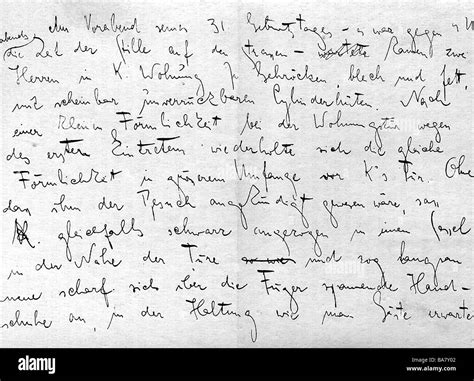 Am Vorabend seines 31 Geburtstages - es war gegen 9 Uhr
abends, die Zeit der Stille auf den Strassen - kamen zwei
Herren in K. Wohnung In Gehröcken, bleich und fett,
mit scheinbar unverrückbaren Cylinderhüten. Nach
einer kleinen Förmlichkeit bei der Wohnungstür wegen
des ersten Eintretens wiederholte sich die gleiche
Förmlichkeit in grösserem Umfange vor K's Tür. Ohne
dass ihm der Besuch angekündigt gewesen wäre, sass
K. gleichfalls schwarz angezogen in einem Sessel
in der Nähe der Türe und zog langsam
neue scharf sich über die Finger spannende Hand-
schuhe an, in der Haltung wie man Gäste erwartet
alamy
alamy
Image ID: BA7Y02
www.alamy.com